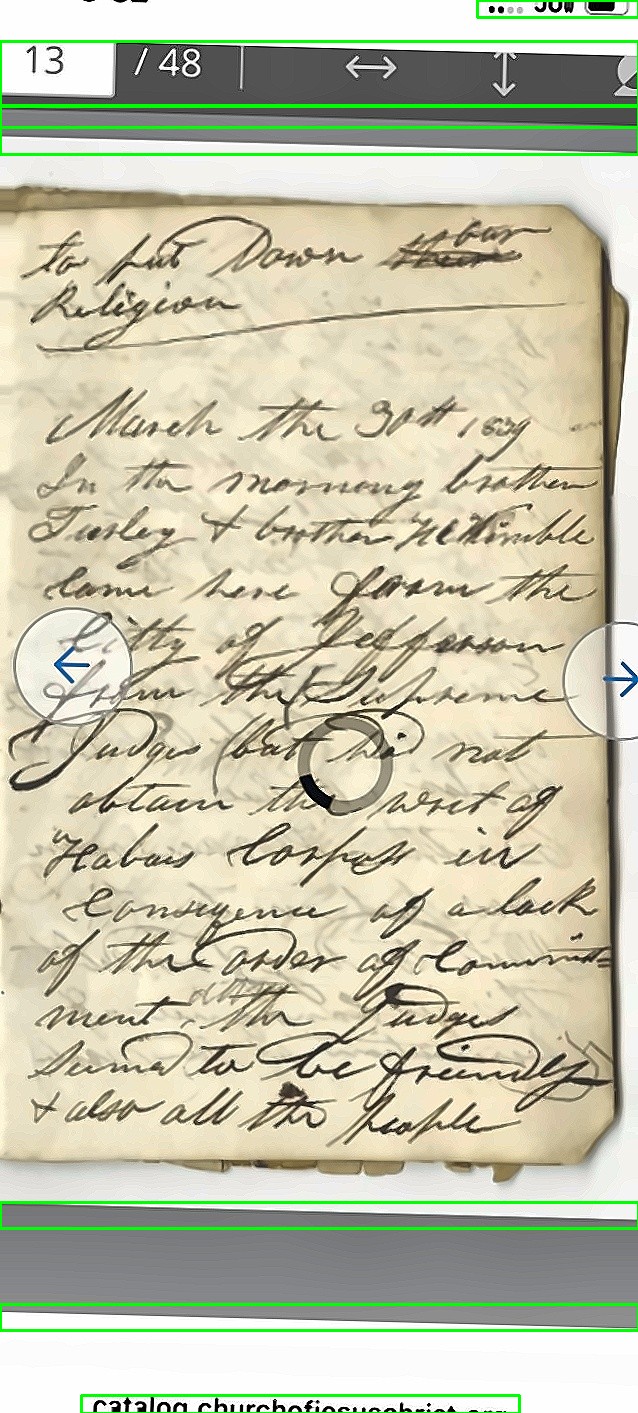 13 / 48
to put Down our
Religion
March the 30th 1839
In the morning brother
Turley & brother H C Kimble
Came here from the
Citty of Jefferson
from the Supreme
Judges but did not
obtain the writ of
Habais Corpus in
Conseqence of a lack
of the order of Commit=
ment the Judges
Semed to be friendly
& also all the people
catalog.churchofjesuschrist.org